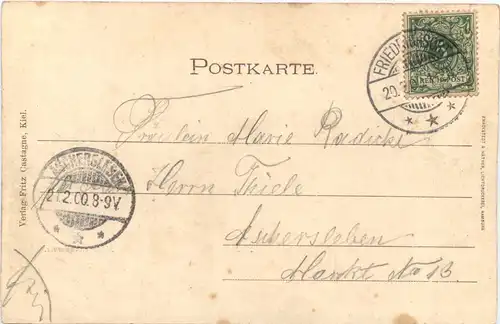 POSTKARTE.
FRIEDRICHSR
20.
REICHSPOST
Fräulein Marie Radicke
Herrn Thiele
Aschersleben
Markt No 13.
ASCHERSLEBEN
21.2.00.8-9V.
Verlag: Fritz Castagne, Kiel.
KNACKSTEDT & NÄTHER, LICHTDRUCKEREI, HAMBURG